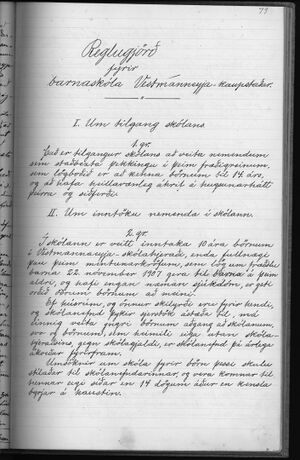 79
Reglugjörð
fyrir
barnaskóla Vestmanneyja-kaupstaðar.
I. Um tilgang skólans
1. gr.
Það er tilgangur skólans að veita nemendum
sem staðbesta þekkingu í þeim fræðigreinum,
sem lögboðið er að kenna börnum til 14 ára,
og að hafa hollvænleg áhrif á hugsunarhátt
þeirra og siðferði.
II. Um inntöku nemenda í skólann.
2. gr.
Í skólann er veitt inntaka 10 ára börnum
í Vestmannaeyja-skólahjeraði, enda fullnægi
þau þeim mintunarkröfum, sem lög um fræðslu
barna 22. nóvember 1907 gera til barna á þeim
aldri, og hafi engan næman sjúkdóm, er geti
orðið öðrum börnum að meini.
Ef húsrúm, og önnur skilyrði eru fyrir hendi,
og skólanefnd þykir sjerstök ástæða til, má
einnig veita yngri börnum aðgang að skólanum,
svo og börnum, sem heimili eiga utan skóla-
hjeraðsins, gegn skólagjaldi, er skólanefnd þá árlega
ákveður fyrirfram.
Umsóknir um skóla fyrir börn þessi skulu
stílaðar til skólanefndarinnar, og vera komnar til
hennar eigi síðar en 14 dögum áður en kensla
byrjar á haustin.